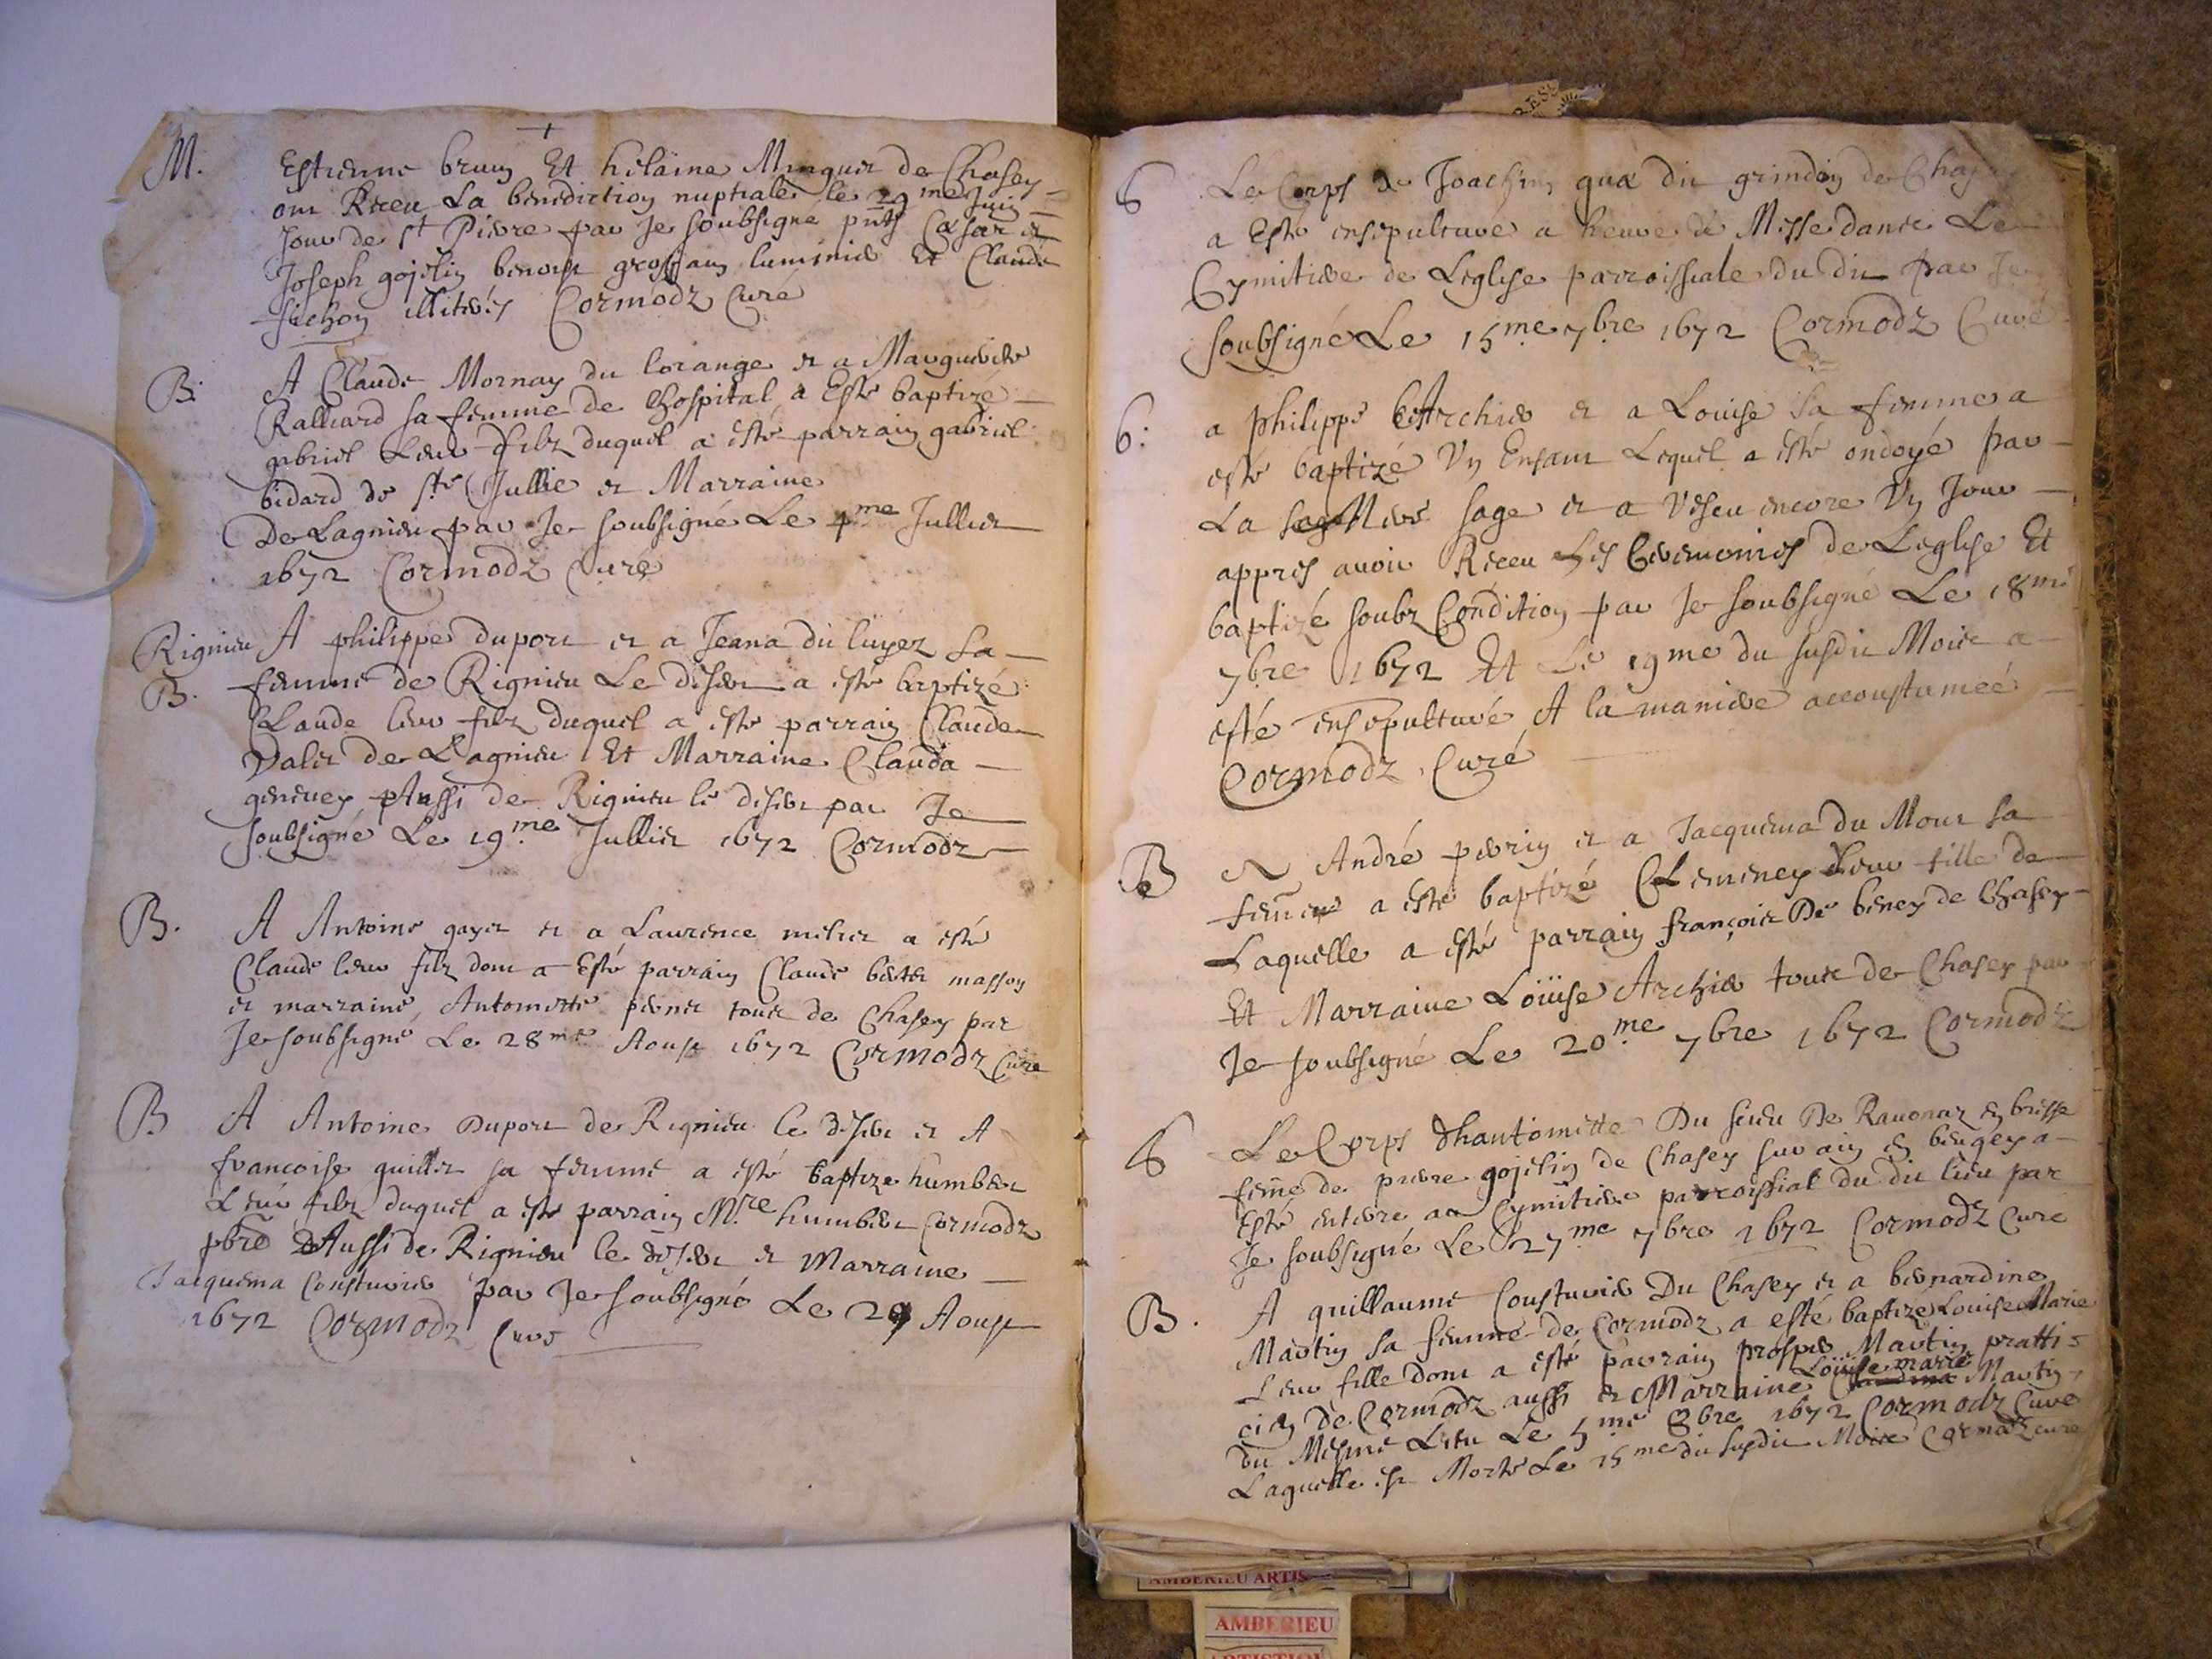 M.
Estienne brun Et hélaine Minguet de Chasey
ont Receu La benediction nuptiale le 29me Juin
Jour de st Pierre par Je soubsigné pnts Cæsar et
Joseph gojelin benoist grossain luminier Et Claude
fichon illiterés Cormodz Curé
B.
A Claude Mornay du lorange et a Marguerite
Ralliard sa femme de Lhospital a Esté baptizé
gabriel Leur filz duquel a esté parrain gabriel
bidard de ste Jullie et Marraine
De Lagnieu par Je soubsigné Le 4me Jullier
1672 Cormodz Curé
Rignieu
B.
A philippe duport et a Jeana du luyez sa
femme de Rignieu Le desert a esté baptizé
Claude leur filz duquel a esté parrain Claude
Valet de Lagnieu Et Marraine Clauda
genevey Aussi de Rignieu le desert par Je
soubsigné Le 19me Jullier 1672 Cormodz
B.
A Antoine gayet et a Laurence melier a esté
Claude leur filz dont a Esté parrain Claude masson
et marraine Antoinette pernet touts de Chasey par
Je soubsigné Le 28me Aoust 1672 Cormodz Curé
B
A Antoine Duport de Rignieu le desert et A
francoise guillet sa femme a esté baptize humbert
Leur filz duquel a esté parrain Mre humbert Cormodz
pbre Aussi de Rignieu le desert et Marraine
Jaquema Cousturier par Je soubsigné Le 29 Aoust
1672 Cormodz Curé
S
Le Corps de Joachim qua dit grindon de Chasey
a Esté ensepulturé a heure de Messe dants Le
Cymitiere de Leglise parroissiale du dit par Je
soubsigné Le 15me 7bre 1672 Cormodz Curé
6:
a philippe Archier et a Louise sa femme a
esté baptizé Un Enfant Lequel a esté ondoyé par
La Mere sage et a Vescu encore Un Jour
appres avoir Receu Les Ceremonies de Leglise Et
baptizé soubz Condition par Je soubsigné Le 18me
7bre 1672 Et Le 19me du susdit Mois a
esté ensepulturé A la maniere accoustumeé
Cormodz Curé
B
A André perrin et a Jacquema du Mont sa
femme a esté baptizé Clemency Leur fille de
Laquelle a esté parrain françois De beney de Chasey
Et Marraine Loüise Archier touts de Chasey par
Je soubsigné Le 20me 7bre 1672 Cormodz
S
Le Corps dhantoinette Du sieu De Ravonaz en bresse
feme de pierre gojelin de Chasey sur ain en beugey a
Esté enterre au Cymitiere parroissial du dit lieu par
Je soubsigné Le 27me 7bre 1672 Cormodz Curé
B.
A guillaume Cousturier Du Chasey et a bernardine
Martin sa femme de Cormodz a esté baptizé Louise Marie
Leur fille dont a esté parrain prosper Martin pratti-
cien de Cormodz aussi et Marraine Loüise marie Martin
du Mesme Lieu Le 5me 8bre 1672 Cormodz Curé
Laquelle est Morte Le 15me du susdit Mois Cormodz curé
AMBERIEU ARTIS
AMBERIEU